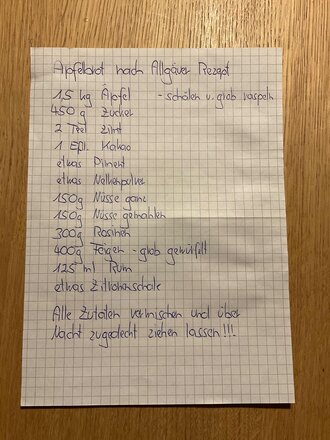 Apfelbrot nach Allgäuer Rezept
1,5 kg Äpfel - schälen u. grob raspeln
450 g Zucker
2 Teel Zimt
1 Eßl. Kakao
etwas Piment
etwas Nelkenpulver
150g Nüsse ganz
150g Nüsse gemahlen
300g Rosinen
400g Feigen - grob gewürfelt
125 ml Rum
etwas Zitronenschale
Alle Zutaten vermischen und über
Nacht zugedeckt ziehen lassen!!!